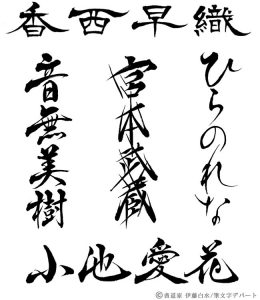 香西早織
ひらのれな
宮本武蔵
音無美樹
小池愛花
©書道家 伊藤白水/筆文字デパート